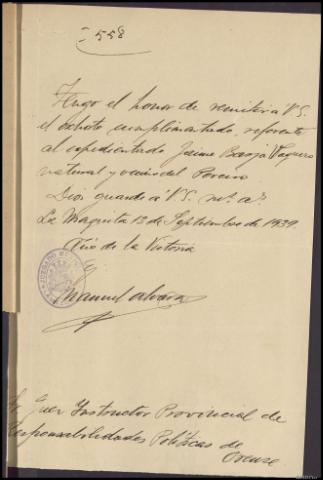 I 558
Tengo el honor de remitir a V.S.
el exhorto cumplimentado, referente
al expedientado Jaime Borja Vaquero
natural y vecino del Pereiro
Dios guarde a V.S. ms. as.
La Mezquita 13 de Septiembre de 1939.
Año de la Victoria
Manuel Alvarez
Sr. Juez Instructor Provincial de
Responsabilidades Políticas de
Orense